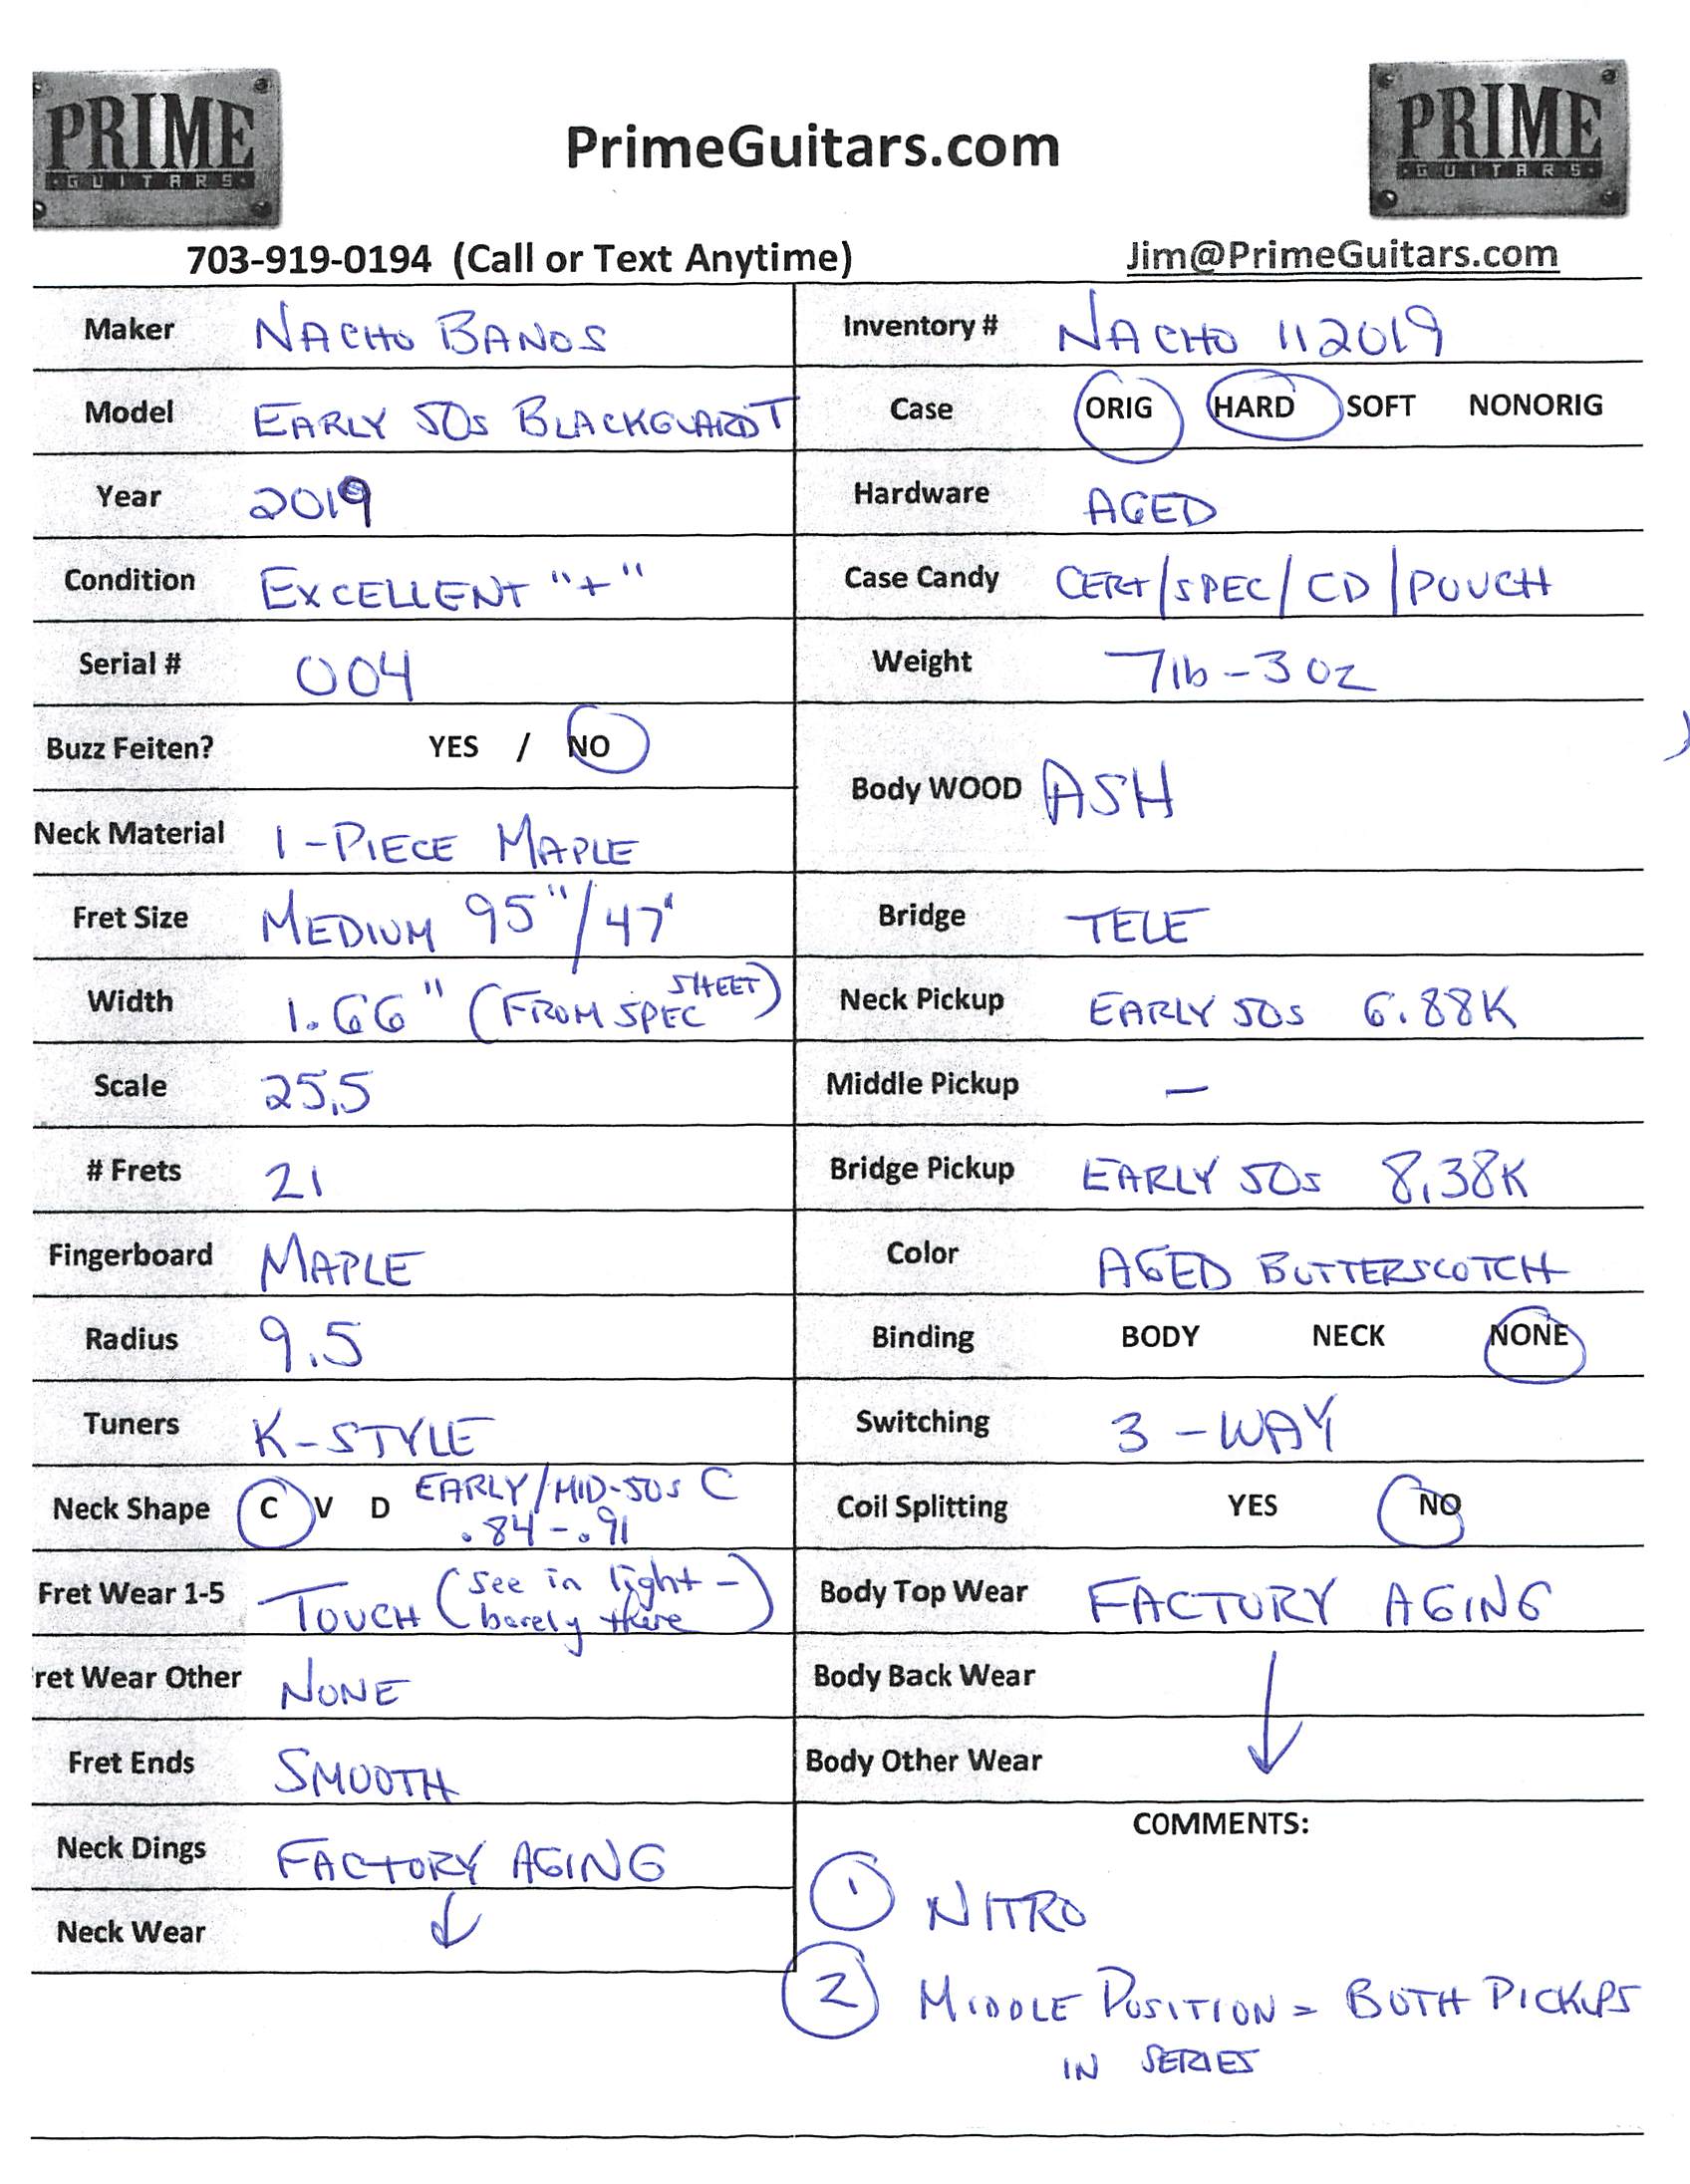 PRIME
GUITARS
PrimeGuitars.com
PRIME
GUITARS
703-919-0194 (Call or Text Anytime)
Jim@PrimeGuitars.com
Maker NACHO BANOS
Inventory # NACHO 112019
Model EARLY 50s BLACKGUARD T
Case ORIG HARD SOFT NONORIG
Year 2019
Hardware AGED
Condition EXCELLENT "+"
Case Candy CERT/SPEC/CD/POUCH
Serial # 004
Weight 7lb-3oz
Buzz Feiten? YES / NO
Body WOOD ASH
Neck Material 1-PIECE MAPLE
Fret Size MEDIUM 95"/47"
Bridge TELE
Width 1.66" (FROM SPEC SHEET)
Neck Pickup EARLY 50s 6.88K
Scale 25.5
Middle Pickup —
# Frets 21
Bridge Pickup EARLY 50s 8.38K
Fingerboard MAPLE
Color AGED BUTTERSCOTCH
Radius 9.5
Binding BODY NECK NONE
Tuners K-STYLE
Switching 3-WAY
Neck Shape C V D EARLY/MID-50s C
.84-.91
Coil Splitting YES NO
Fret Wear 1-5 TOUCH (See in light -
barely there)
Body Top Wear FACTORY AGING
ret Wear Other NONE
Body Back Wear
Fret Ends SMOOTH
Body Other Wear
Neck Dings FACTORY AGING
Neck Wear
COMMENTS:
1 NITRO
2 MIDDLE POSITION = BOTH PICKUPS
IN SERIES